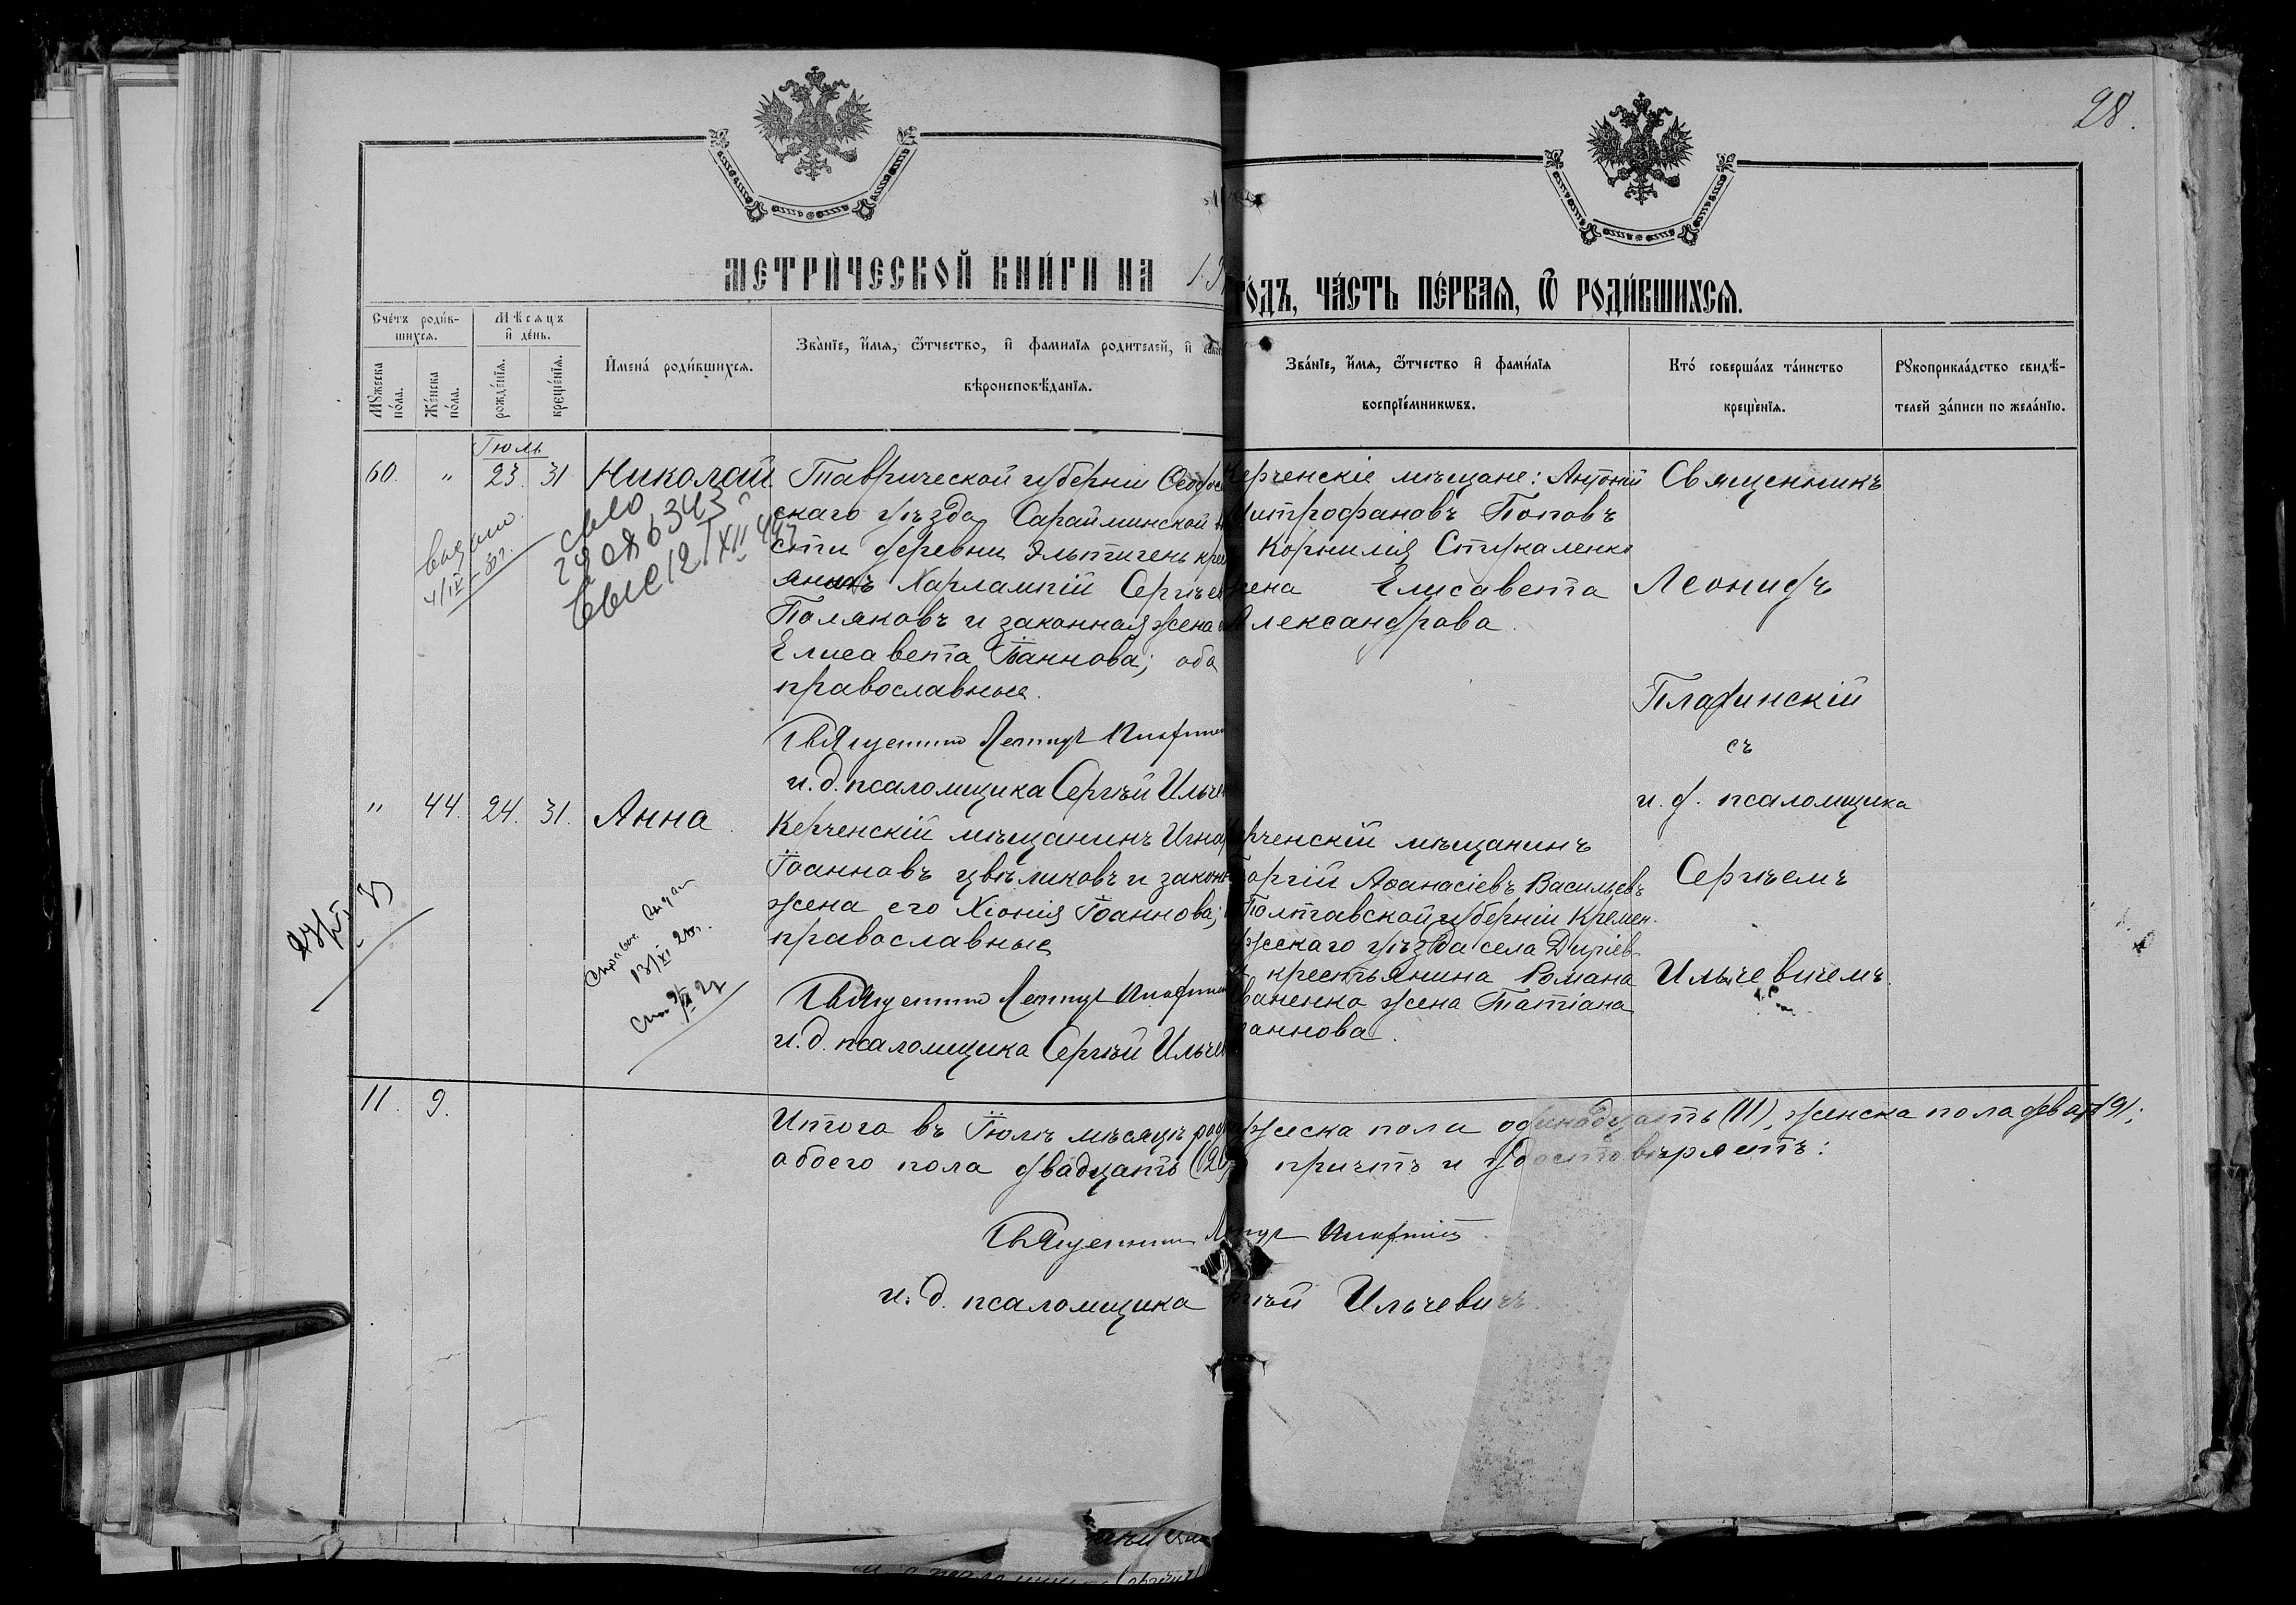 28.
МЕТРИЧЕСКОЙ КНИГИ НА 19
ГОДЪ, ЧАСТЬ ПЕРВАЯ, Ѿ РОДИВШИХСЯ.
Счетъ родив-
шихся.
Мужеска
пола.
Женска
пола.
Мѣсяцъ
и день.
рожденія.
крещенія.
Имена родившихся.
Званіе, имя, ѿтчество, и фамилія родителей, и
вѣроисповѣданія.
Званіе, имя, ѿтчество и фамилія
воспріемниковъ.
Кто совершалъ таинство
крещенія.
Рукоприкладство свидѣ-
телей записи по желанію.
Іюль
60. " 23. 31 Николай
Таврической губерніи Ѳеодос
скаго уѣзда Сарайминской
сти деревни Эльтигень крес
янинъ Харлампій Сергѣев
Поляковъ и законная жена е
Елисавета Іоаннова; оба
православные.
Священникъ Леонидъ
и. д. псаломщика Сергѣй Ильче
Керченскіе мѣщане: Антоній
Митрофановъ Поповъ
Корнилія Стукаленко
жена Елисавета
Александрова.
Священникъ
Леонидъ
Плафинскій
съ
и. д. псаломщика
Сергѣемъ
Ильчевичемъ.
" 44. 24. 31. Анна
Керченскій мѣщанинъ Игна
Іоанновъ Цвѣликовъ и законн
жена его Хіонія Іоаннова;
православные
Священникъ Леонидъ
и. д. псаломщика Сергѣй Ильче
Керченскій мѣщанинъ
Георгій Аѳанасіевъ Васильевъ
Полтавской губерніи Кремен-
чужскаго уѣзда села
крестьянина Романа
Иваненко жена Татіана
Іоаннова.
11. 9.
Итого въ Іюлѣ мѣсяцѣ род
жеска пола одинадцать (11), женска пола девять (9);
обоего пола двадцать (20)
причтъ и удостовѣряетъ:
Священникъ Леонидъ
и. д. псаломщика Сергѣй Ильчевичъ.